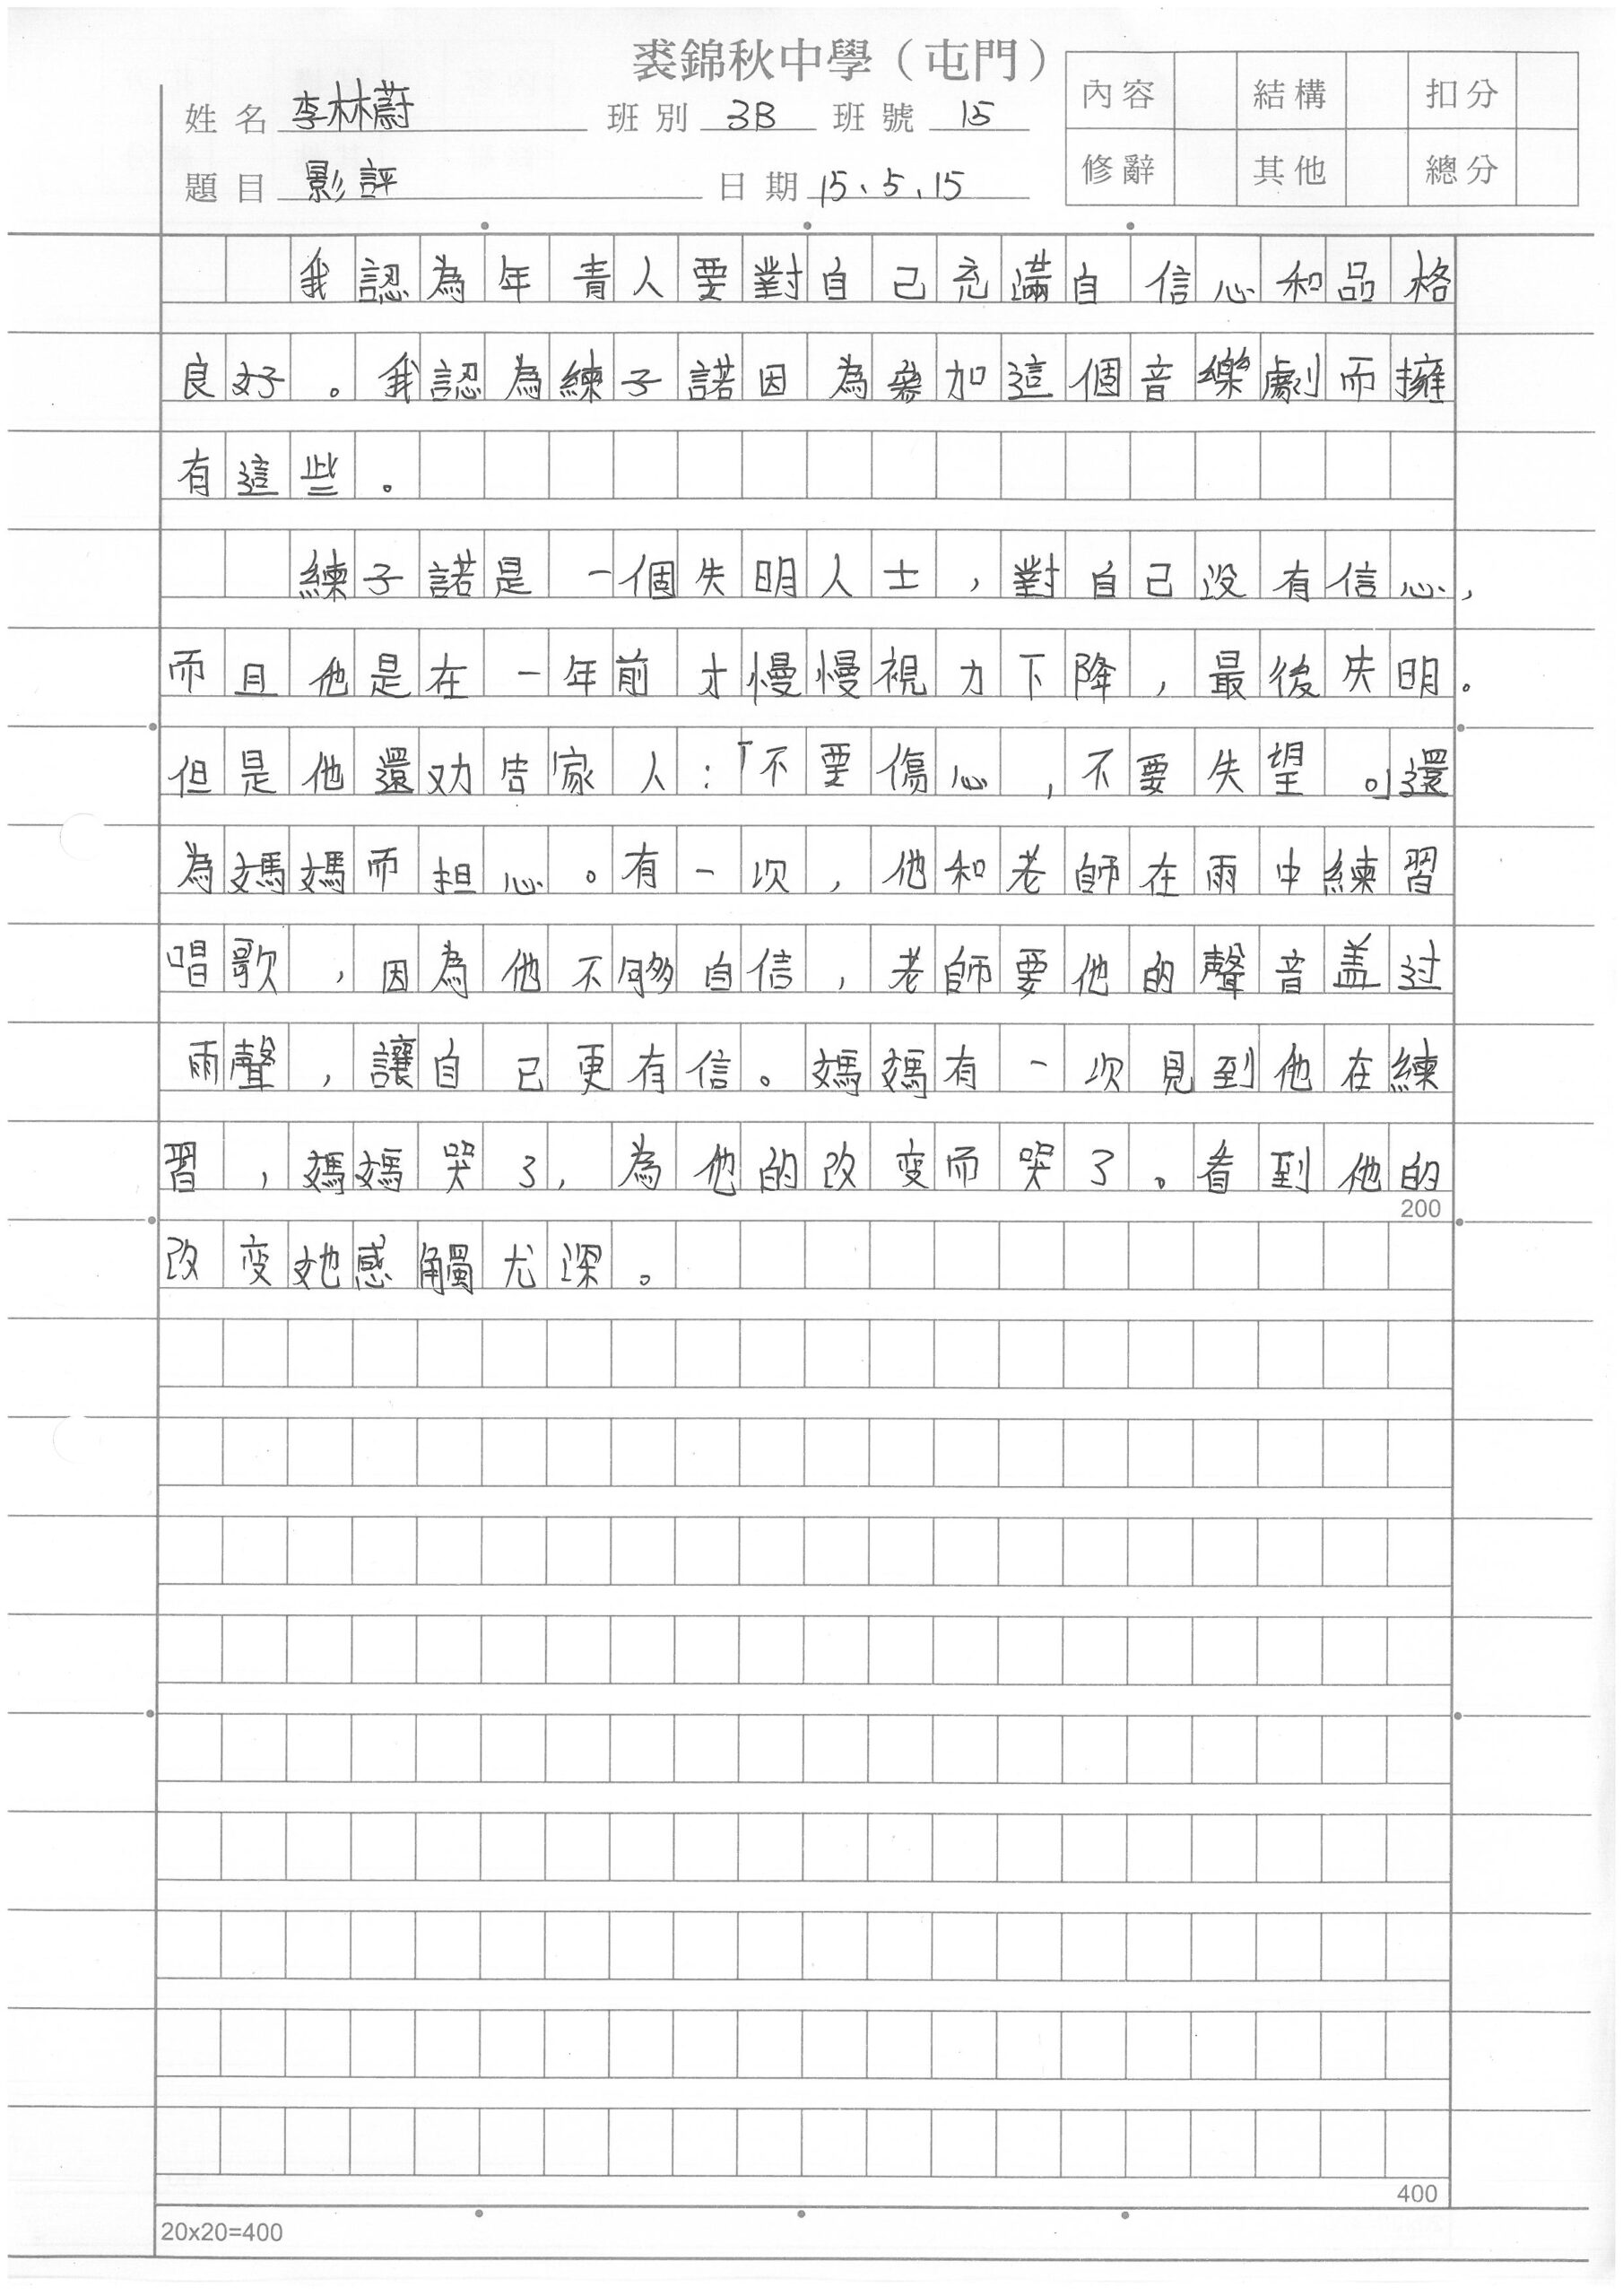 裘錦秋中學（屯門）
姓名 李林蔚 班別 3B 班號 15
題目 影評 日期 15、5、15
內容 結構 扣分
修辭 其他 總分
我認為年青人要對自己充滿自信心和品格
良好。我認為練子諾因為參加這個音樂劇而擁
有這些。
練子諾是一個失明人士，對自己没有信心，
而且他是在一年前才慢慢視力下降，最後失明。
但是他還劝告家人：「不要傷心，不要失望。」還
為媽媽而担心。有一次，他和老師在雨中練習
唱歌，因為他不够自信，老師要他的聲音盖过
雨聲，讓自己更有信。媽媽有一次見到他在練
習，媽媽哭了，為他的改变而哭了。看到他的
200
改变她感觸尤深。
400
20x20=400